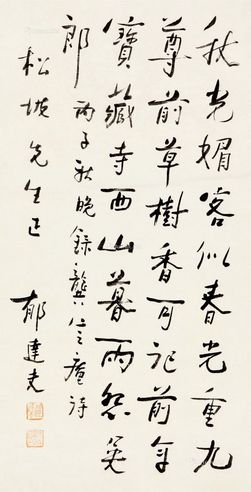 秋光媚客似春光重九
尊前草樹香可記前年
寶藏寺西山暮雨怨吳
郎 丙子秋晚錄龔定庵詩
松坡先生正
郁達夫